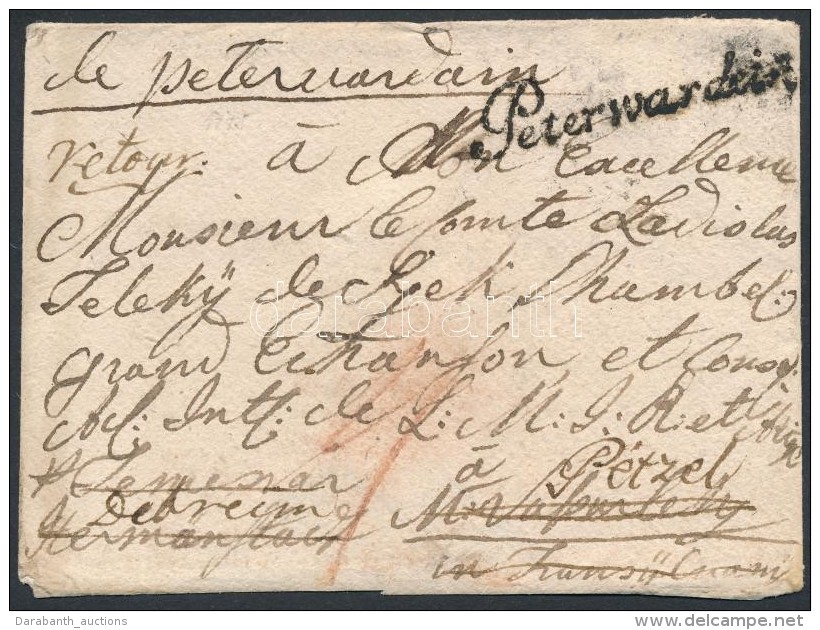 de peterwardain
Peterwardein
retour. à Mon Excellence
Monsieur le Comte Ladislas
Teleky de Szek Chambel:
grand Echanson et Conse
Act: Intt: de L: M: I: R: et
à Pétzel
* Temesvar
Debrecyne
Hermanstadt
in Transÿlvani
darabanth
Darabanth_auctions
www.delcampe.net